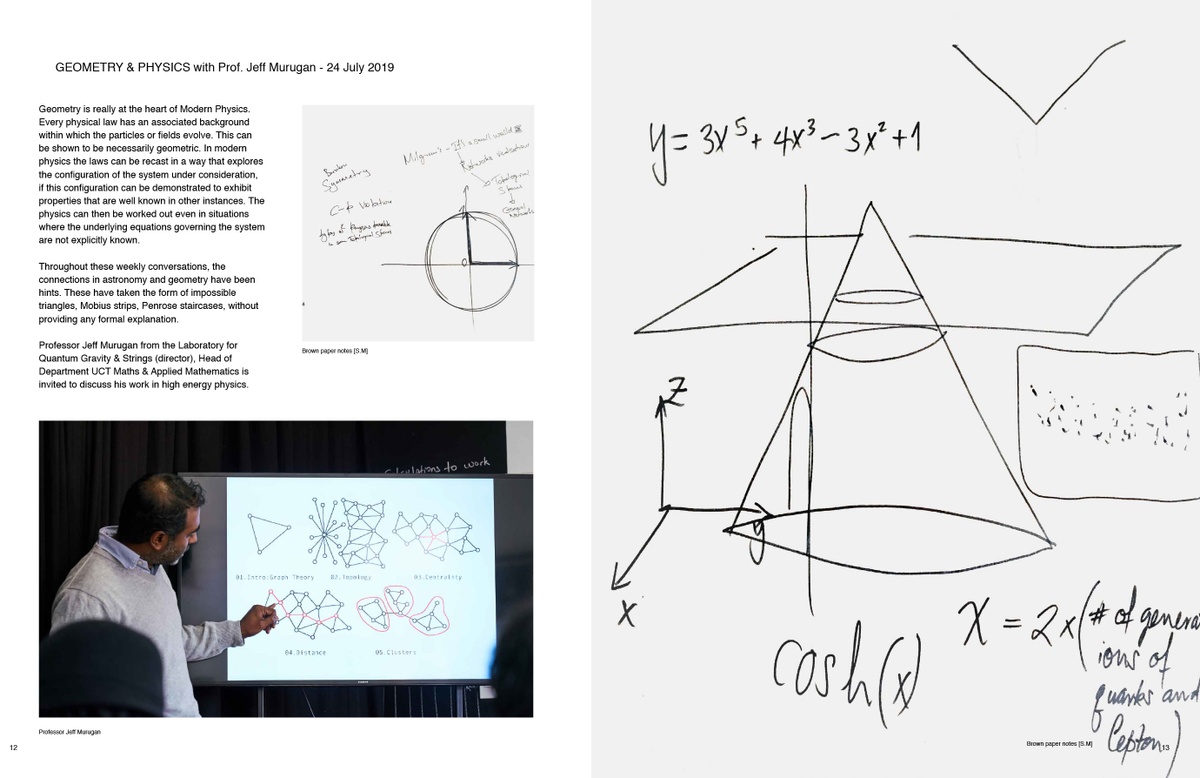 GEOMETRY & PHYSICS with Prof. Jeff Murugan - 24 July 2019
Geometry is really at the heart of Modern Physics.
Every physical law has an associated background
within which the particles or fields evolve. This can
be shown to be necessarily geometric. In modern
physics the laws can be recast in a way that explores
the configuration of the system under consideration,
if this configuration can be demonstrated to exhibit
properties that are well known in other instances. The
physics can then be worked out even in situations
where the underlying equations governing the system
are not explicitly known.
Throughout these weekly conversations, the
connections in astronomy and geometry have been
hints. These have taken the form of impossible
triangles, Mobius strips, Penrose staircases, without
providing any formal explanation.
Professor Jeff Murugan from the Laboratory for
Quantum Gravity & Strings (director), Head of
Department UCT Maths & Applied Mathematics is
invited to discuss his work in high energy physics.
Broken
Symmetry
Milgram's - It's a small world
C-p Violation
Topological
Spaces
Brown paper notes [S.M]
to work
01.Intro:Graph Theory
02.Topology
03.Centrality
04.Distance
05.Clusters
Professor Jeff Murugan
12
y = 3x⁵ + 4x³ - 3x² + 1
z
y
x
cosh(x)
X = 2x(# of generat
ions of
quarks and
Lepton)
Brown paper notes [S.M]
13